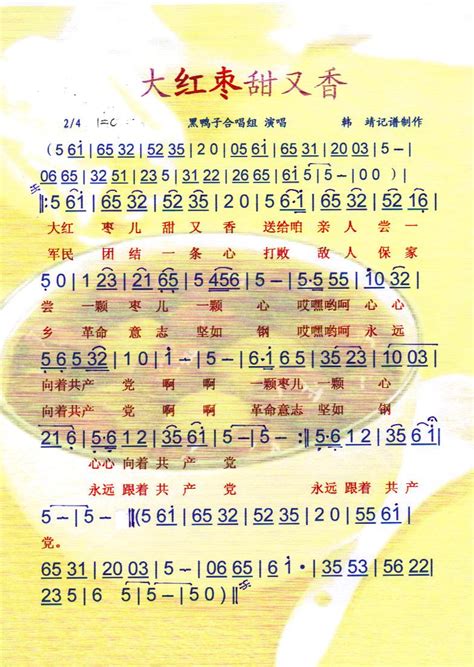 大红枣甜又香
2/4 1=C 黑鸭子合唱组 演唱 韩 靖记谱制作
(5 6i | 65 32 | 52 35 | 20 | 05 6i | 65 31 | 20 03 | 5 – |
06 65 | 32 51 | 23 5 | 35 65 | 16 2 | 5 – | 5 – | 00 ) |
‖: 5 6i | 65 32 | 52 35 | 2 – | 6i 65 | 35 32 | 52 16 |
大红 枣儿 甜又 香 送给咱 亲人 尝一
军民 团结 一条 心 打败 敌人 保家
5 0 | 1 23 | 21 23 | 5 456 | 5 – | 5· 55 | 10 35 |
尝 一颗 枣儿 一颗 心 哎嘿哟呵 心心
乡 革命 意志 坚如 钢 哎嘿哟呵 永远
56 5 32 | 1 – | 2 – | 5 – | 6· i | 65 35 | 23 | 10 03 |
向着共产 党 啊 啊 一颗枣儿 一颗 心
向着共产 党 啊 啊 革命意志 坚如 钢
21 6 | 5· 6 12 | 35 6i | 5 – | 20 23 | 12 03 | 35 6i |
心心 向着 共产 党
永远 跟着 共产 党 永远 跟着 共产
5 – | 5 – :‖ (5 6i | 65 32 | 5 i· | 65 32 | 5 – | 05 6i |
党。
65 31 | 20 03 | 5 – | 06 65 | 32 51 | 20 03 |
23 5 6 5 – | 5 – | 50 ) ‖